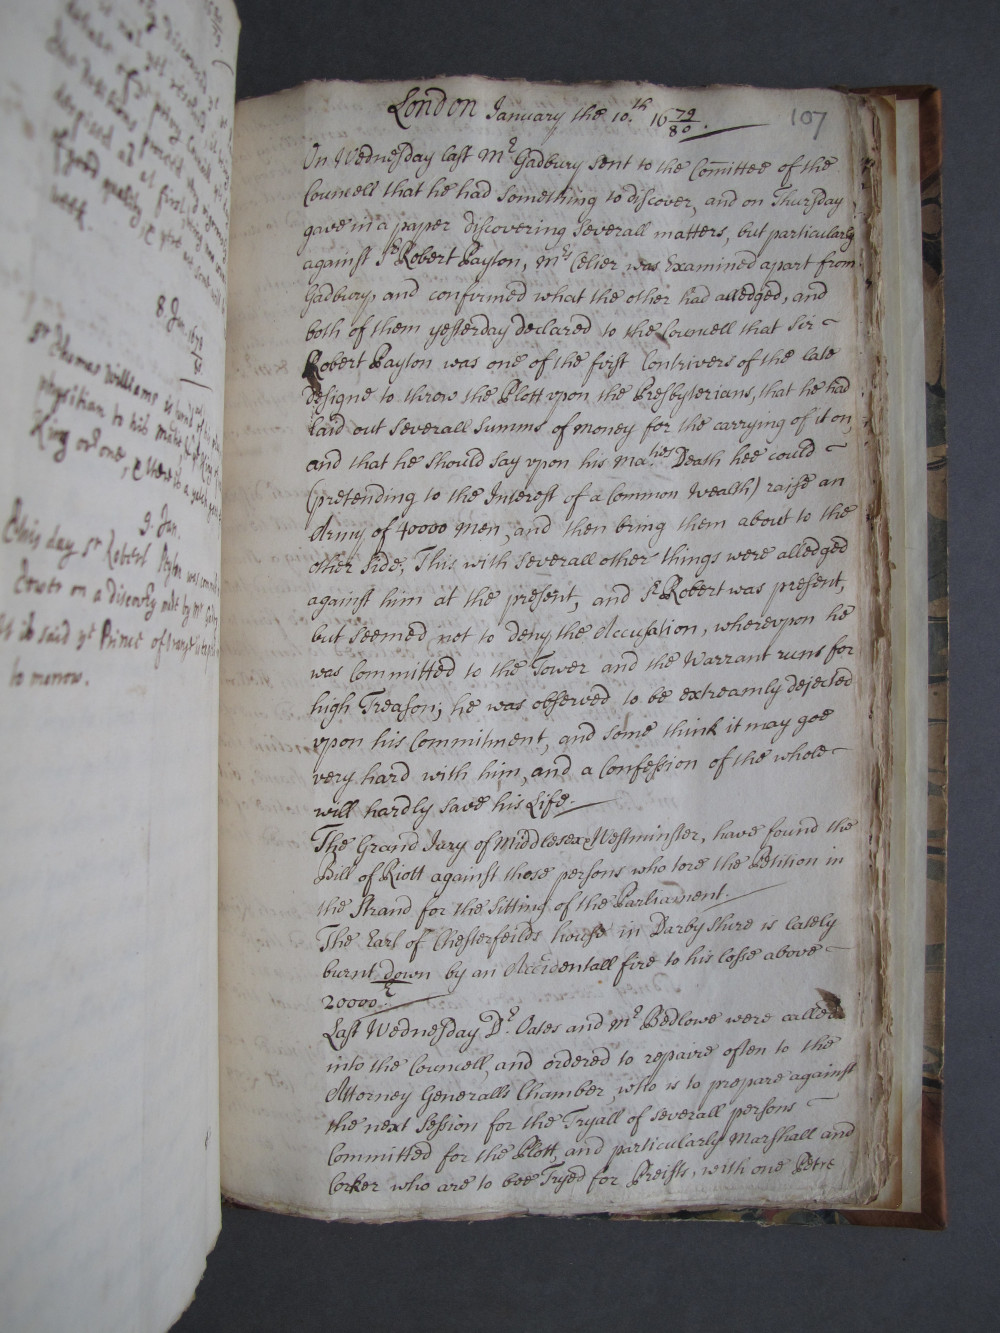 8. Jan. 1679/80
Sr Thomas Williams is
physitian to his
King
9. Jan.
This day Sr Robert Peyton was
Tower on a discovery made by Mr
It is said yt Prince of Orange
to morrow.
London January the 10.th 1679/80.
107
On Wednesday last Mr. Gadbury sent to the Comittee of the
Councell that he had something to discover, and on Thursday
gave in a paper discovering severall matters, but particularly
against Sr. Robert Payton, Mrs Celier was Examined apart from
Gadbury, and confirmed what the other had alledged, and
both of them yesterday declared to the Councell that Sir
Robert Payton was one of the first Contrivers of the late
designe to throw the Plott upon the Presbyterians, that he had
laid out severall summs of money for the carrying of it on,
and that he should say vpon his Ma.ties Death hee could
(pretending to the Interest of a Common Wealth) raise an
Army of 40000 men, and then bring them about to the
other side; This with severall other things were alledged
against him at the present, and Sr. Robert was present,
but seemed not to deny the Accusation, wherevpon he
was Committed to the Tower and the Warrant runs for
high Treason; he was observed to be extreamly dejected
vpon his Commitment, and some think it may goe
very hard with him, and a Confession of the whole
will hardly save his Life.
The Grand Jury of Middlesex Westminster, have found the
Bill of Riott against those persons who tore the Petition in
the Strand for the Sitting of the Parliament.
The Earl of Chesterfeilds house in Darbyshire is lately
burnt down by an Accidentall fire to his losse above
20000.l
Last Wednesday Dr. Oates and Mr. Bedlowe were called
into the Councell, and ordered to repaire often to the
Attorney Generalls Chamber, who is to prepare against
the next Session for the Tryall of severall persons
Committed for the Plott, and particularly Marshall and
Corker who are to bee Tryed for Preists, with one Petre